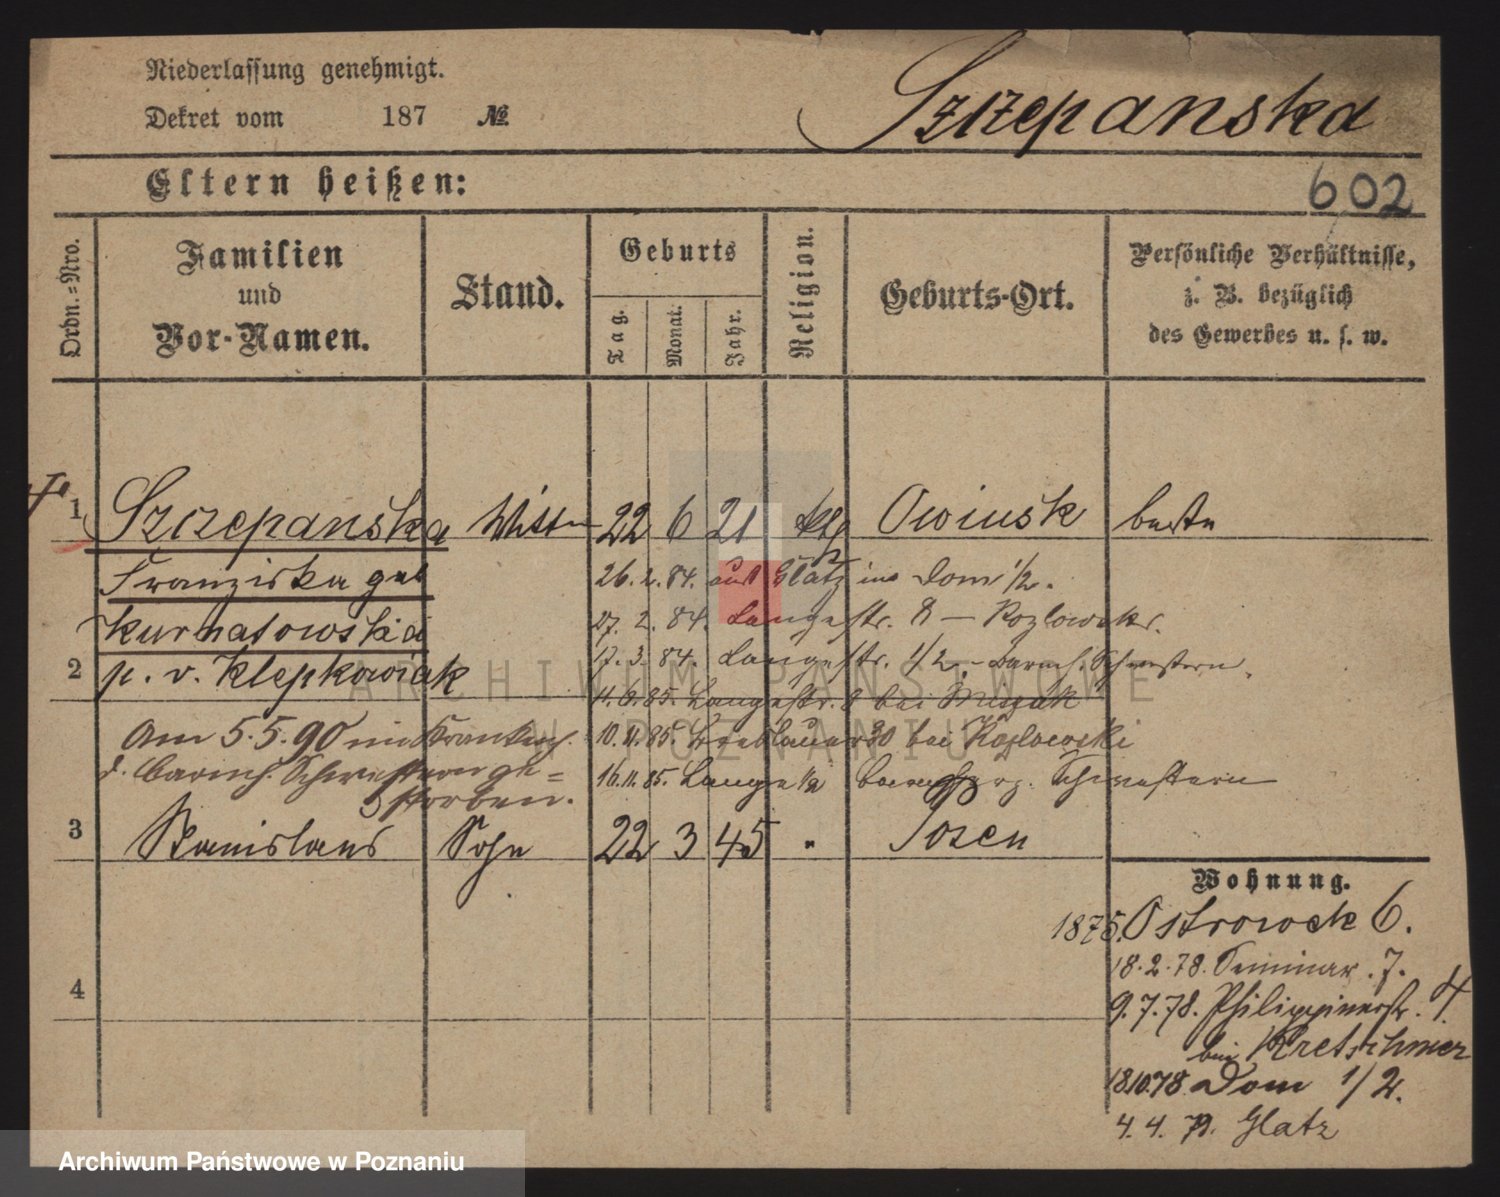 Niederlassung genehmigt.
Dekret vom 187 №
Szczepanska
Eltern heißen:
602
Ordn.=Nro.
Familien
und
Vor-Namen.
Stand.
Geburts
Tag.
Monat.
Jahr.
Religion.
Geburts-Ort.
Persönliche Verhältnisse,
z. B. bezüglich
des Gewerbes u. s. w.
1 Szczepanska 22 6 21 ktg Owinsk
Franziska geb 26. 2. 84. aus Glatz ins Dom 1/2.
Kurnatowska 27. 2. 84. Langestr. 8 — Kozlowski.
17. 3. 84. Langestr. 1/2. Barmh. Schwestern.
2 p. v. Klepkowiak
11. 6. 85. Langestr. 8 bei
Am 5.5.90 im Krankenh. 10. 11. 85. Breslauer 30 bei Kozlowski
d. Barmh. Schwestern ge= 16. 11. 85. Lange 1/2 Schwestern
storben.
3 Stanislaus Sohn 22 3 45 " Posen
Wohnung.
1875. Ostrowek 6.
4
18.2.78. Seminar. 7.
9.7.78. Philippinerstr. 4.
bei Kretschmer
18.10.78 Dom 1/2.
4.4.79. Glatz
ARCHIWUM PAŃSTWOWE
W POZNANIU
Archiwum Państwowe w Poznaniu